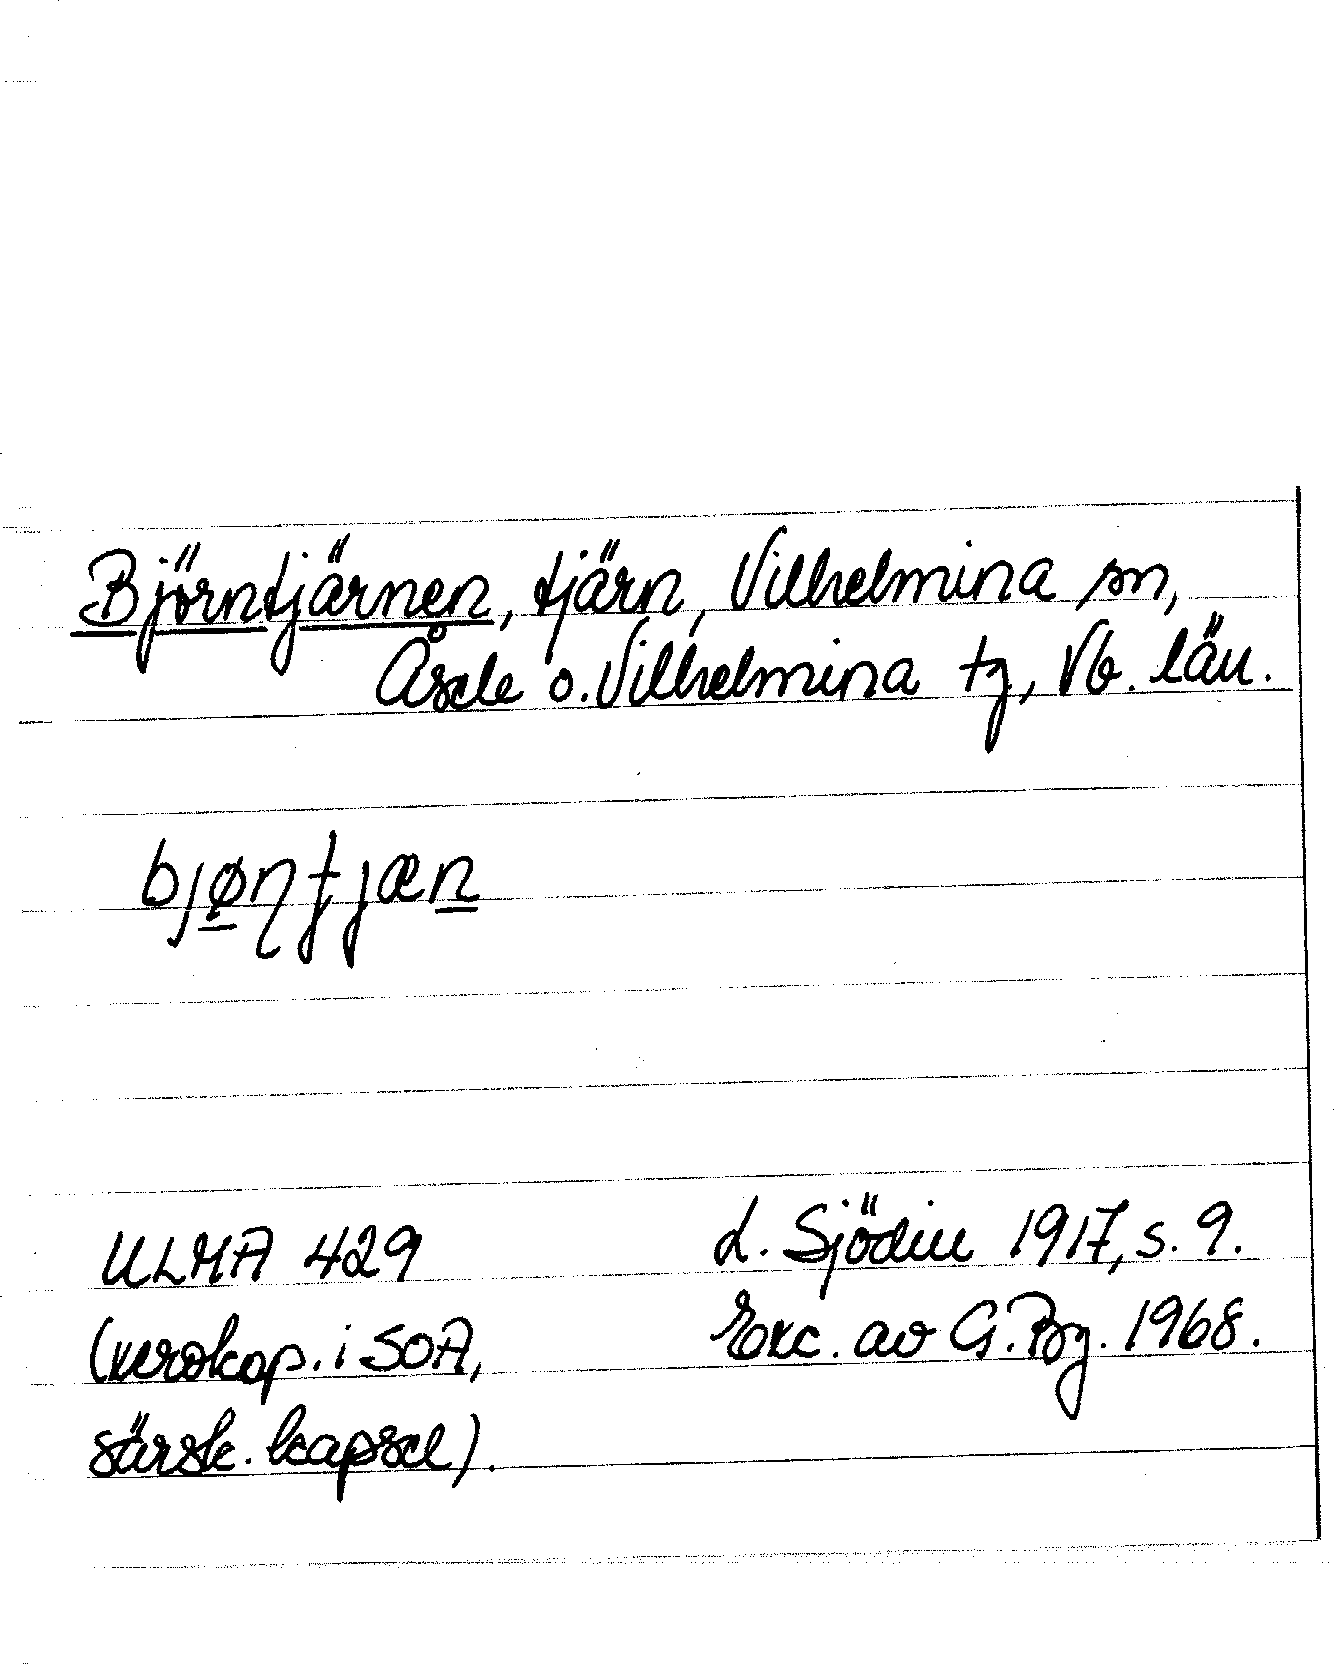 Björntjärnen, tjärn, Vilhelmina sn,
Åsele o. Vilhelmina tg, Vb. län.
bjøɳtjæn
ULMA 429
(xerokop. i SOA,
särsk. kapsel).
L. Sjödin 1917, s. 9.
Exc. av G. Bg. 1968.